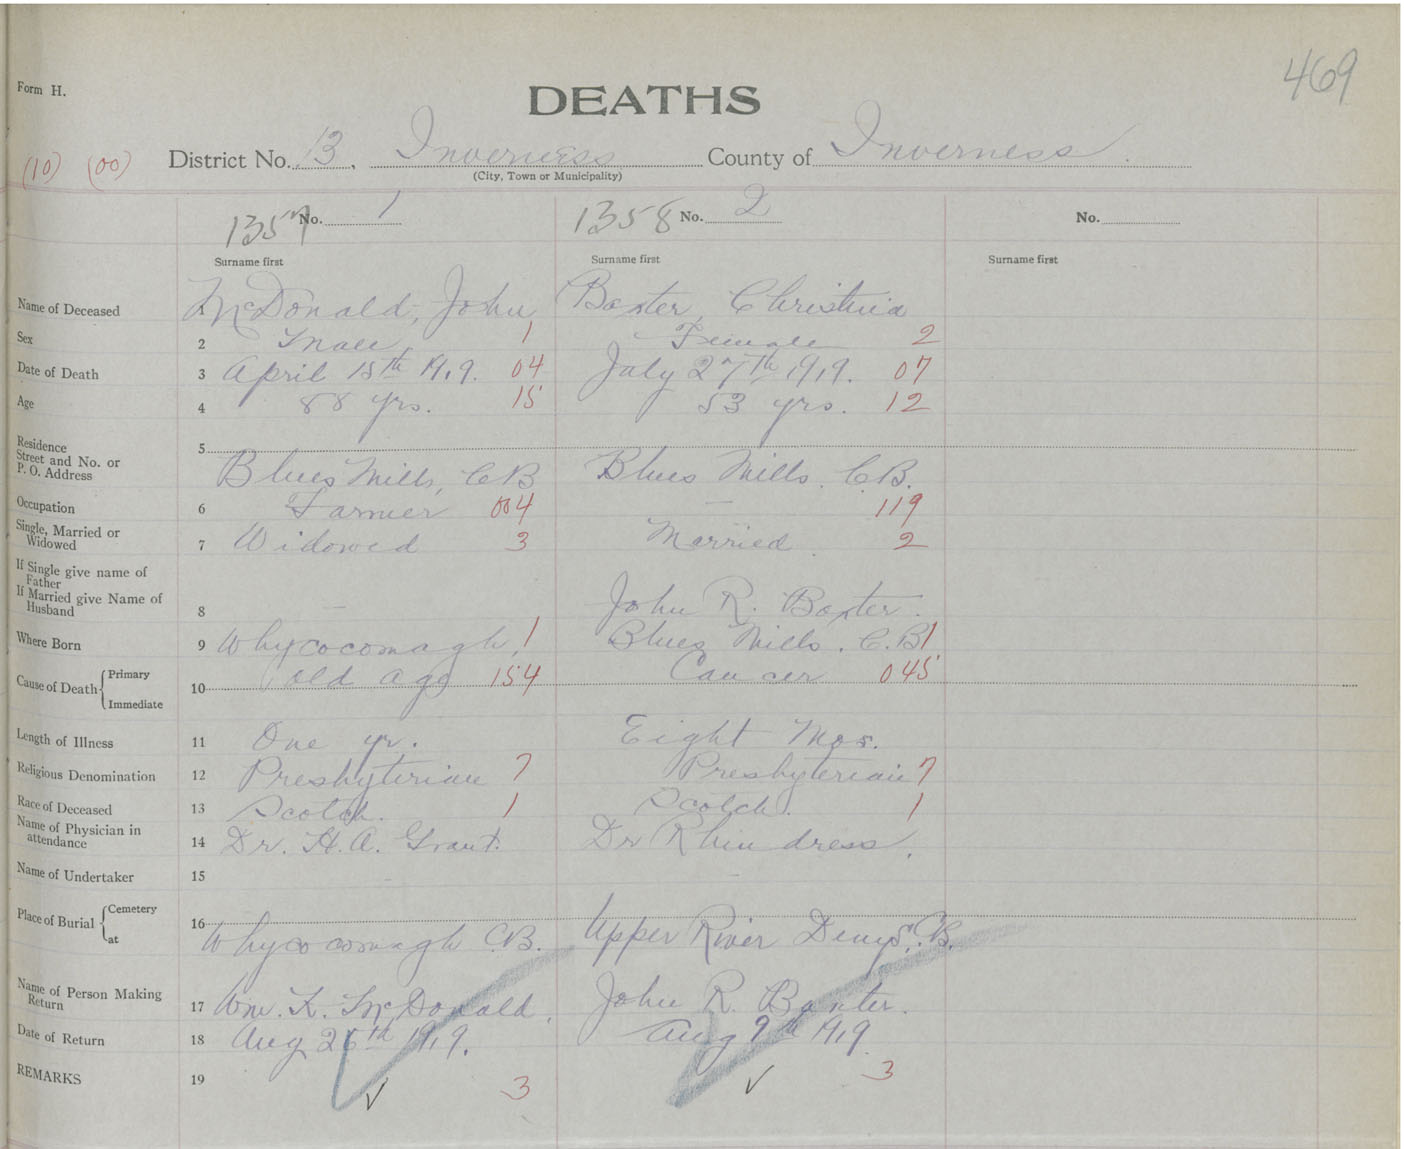 469
Form H.
DEATHS
(10) (00) District No. 13, Inverness County of Inverness.
(City, Town or Municipality)
1357 No. 1 1358 No. 2 No.
Surname first Surname first Surname first
Name of Deceased McDonald, John Baxter, Christina
Sex 2 Male 1 Female 2
Date of Death 3 April 15th 1919. 04 July 27th 1919. 07
Age 4 88 yrs. 15 53 yrs. 12
Residence
Street and No. or
P. O. Address
5 Blues Mills, C.B Blues Mills. C.B.
Occupation 6 Farmer 004 — 119
Single, Married or
Widowed 7 Widowed 3 Married. 2
If Single give name of
Father
If Married give Name of
Husband 8 — John R. Baxter.
Where Born 9 Whycocomagh, 1 Blues Mills. C.B 1
Cause of Death Primary
Immediate
10 old age 154 Cancer 045
Length of Illness 11 One yr. Eight Mos.
Religious Denomination 12 Presbyterian 7 Presbyterian 7
Race of Deceased 13 Scotch. 1 Scotch. 1
Name of Physician in
attendance 14 Dr. H.A. Grant. Dr
Name of Undertaker 15
Place of Burial Cemetery
at
16 Whycocomagh C.B. Upper River Denys. C.B.
Name of Person Making
Return 17 Wm. K. McDonald. John R. Baxter.
Date of Return 18 Aug 1919. Aug 9th 1919
REMARKS 19 3 3